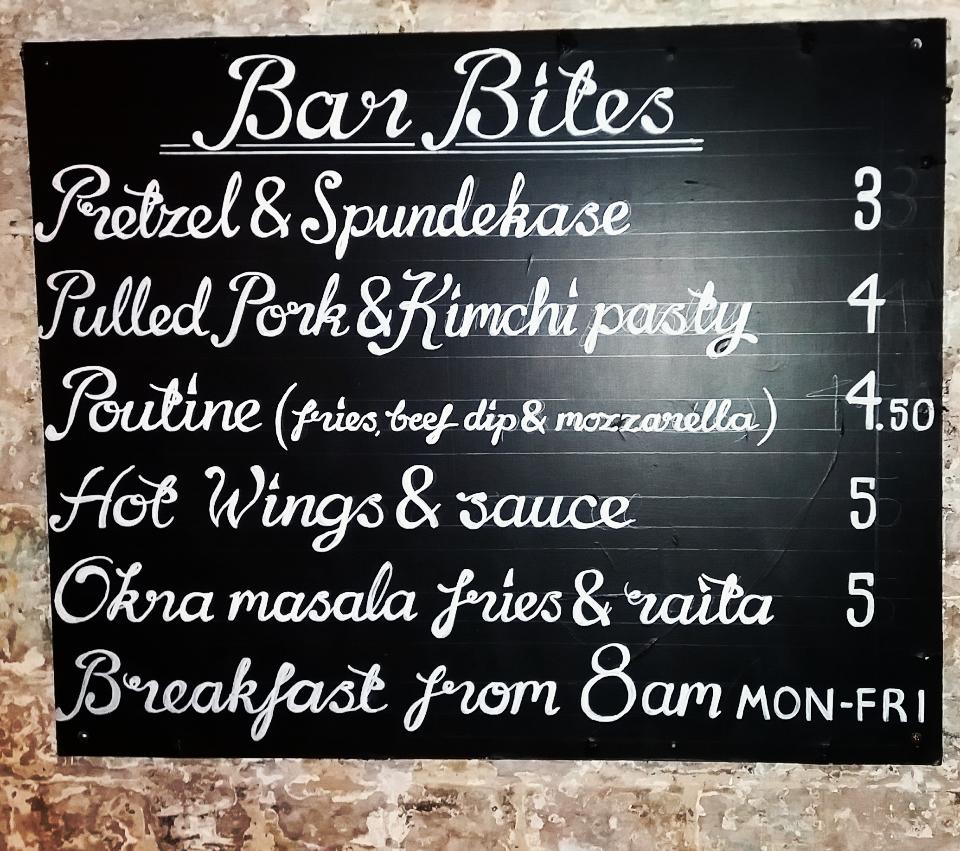 Bar Bites
Pretzel & Spundekase 3
Pulled Pork & Kimchi pasty 4
Poutine (fries, beef dip & mozzarella) 4.50
Hot Wings & sauce 5
Okra masala fries & raita 5
Breakfast from 8am MON-FRI